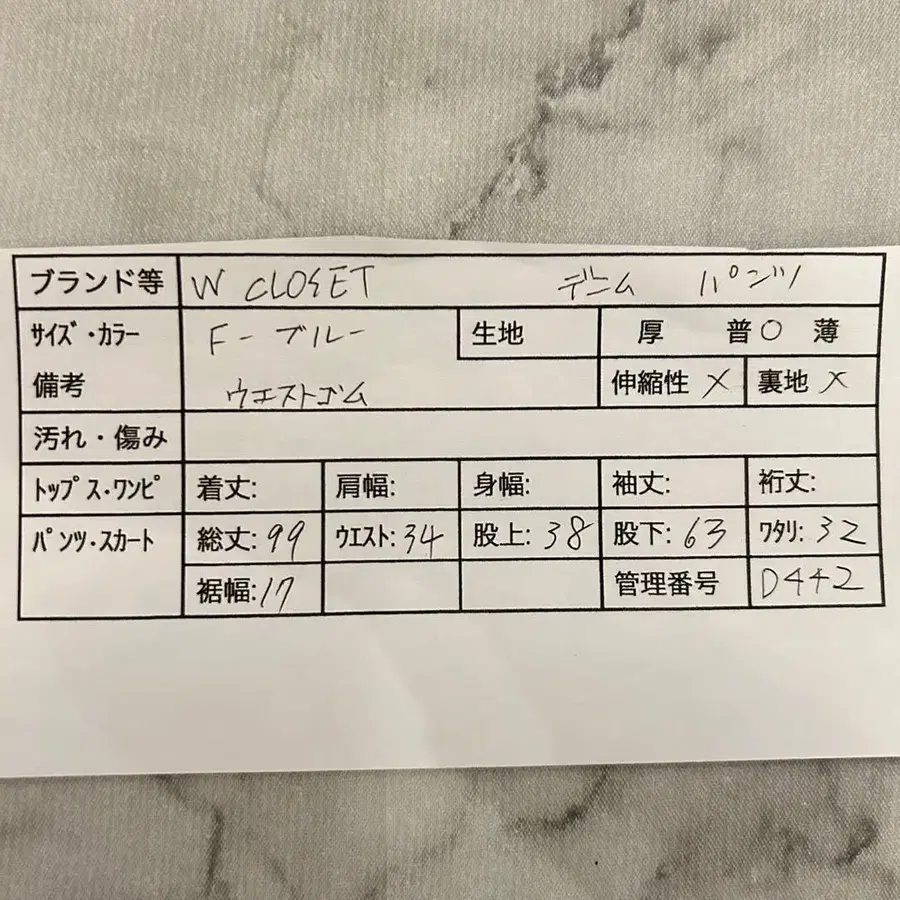 ブランド等 W CLOSET デニム パンツ
サイズ・カラー F-ブルー 生地 厚 普○ 薄
備考 ウエストゴム 伸縮性 × 裏地 ×
汚れ・傷み
トップス・ワンピ 着丈: 肩幅: 身幅: 袖丈: 裄丈:
パンツ・スカート 総丈:99 ウエスト:34 股上:38 股下:63 ワタリ:32
裾幅:17 管理番号 D442